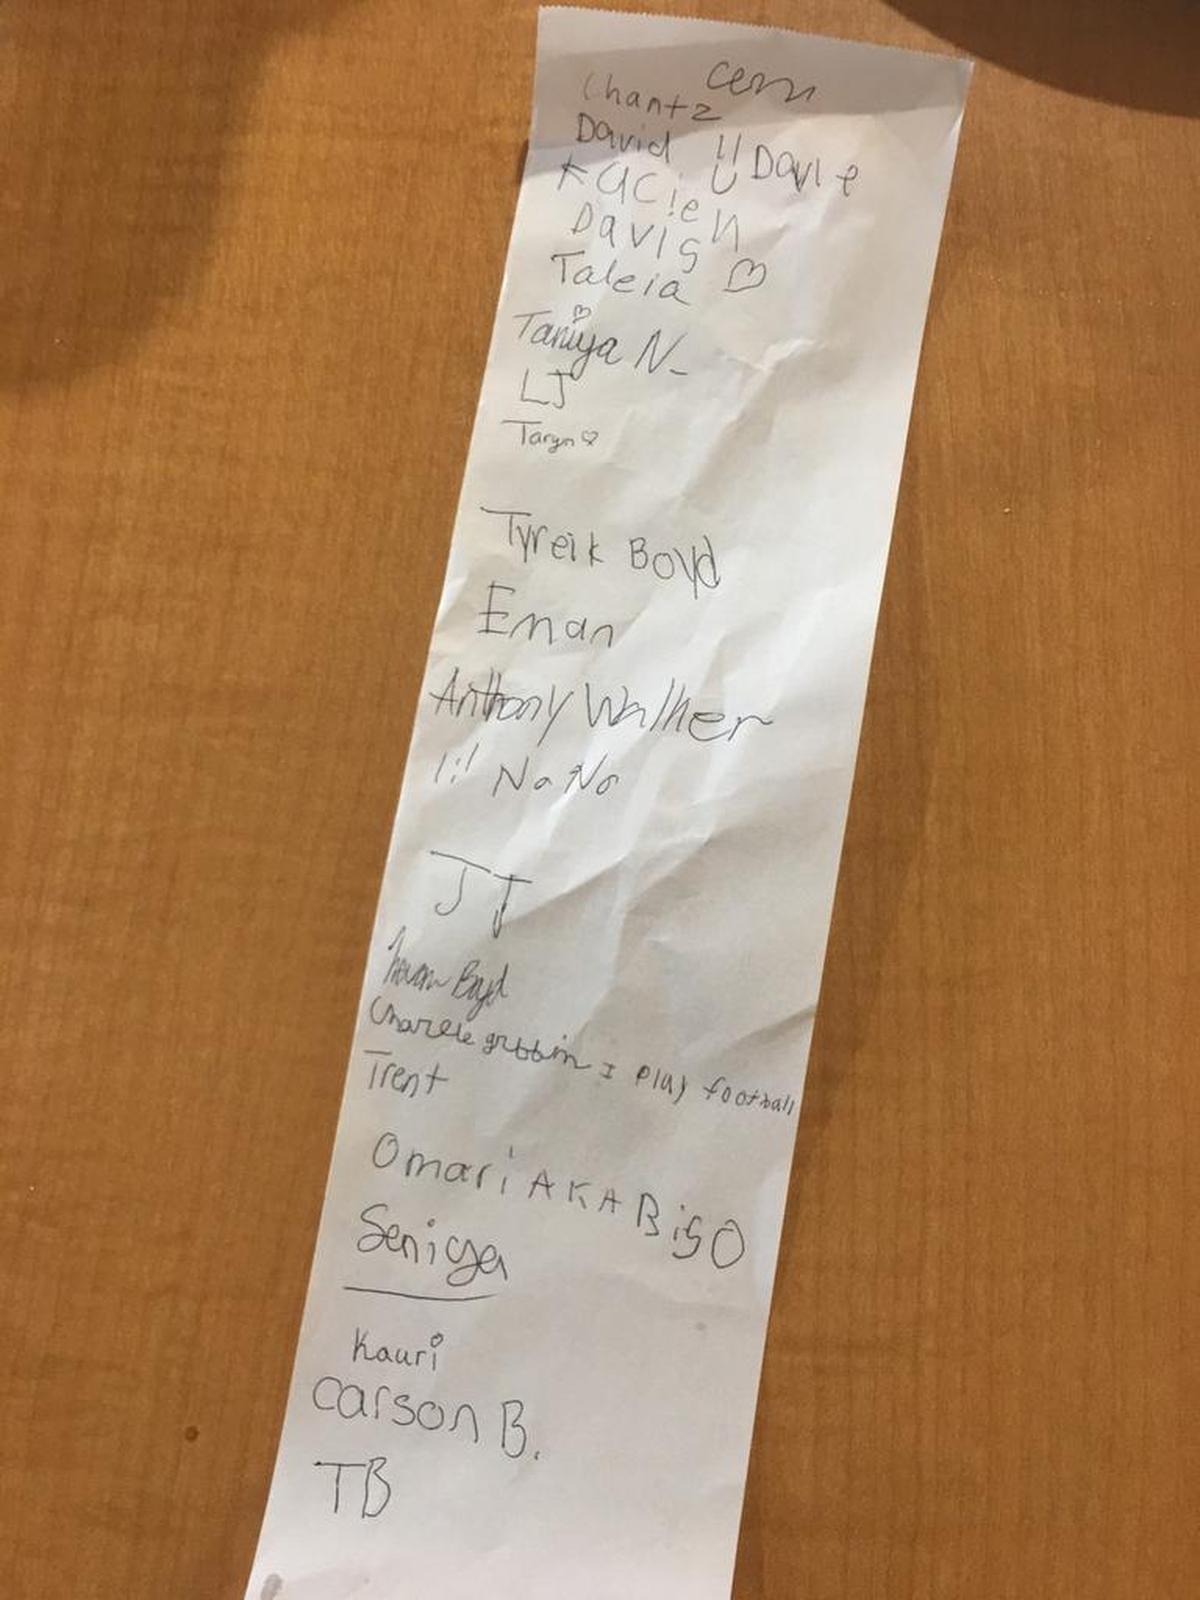 Chantz
David
Davie
Kacien
Davis
Taleia
Taniya N.
LJ
Taryn
Tyreik Boyd
Eman
Anthony Walker
lil NoNo
JT
Boyd
I Play football
Trent
Omari AKA BigO
Seniya
Kauri
Carson B.
TB